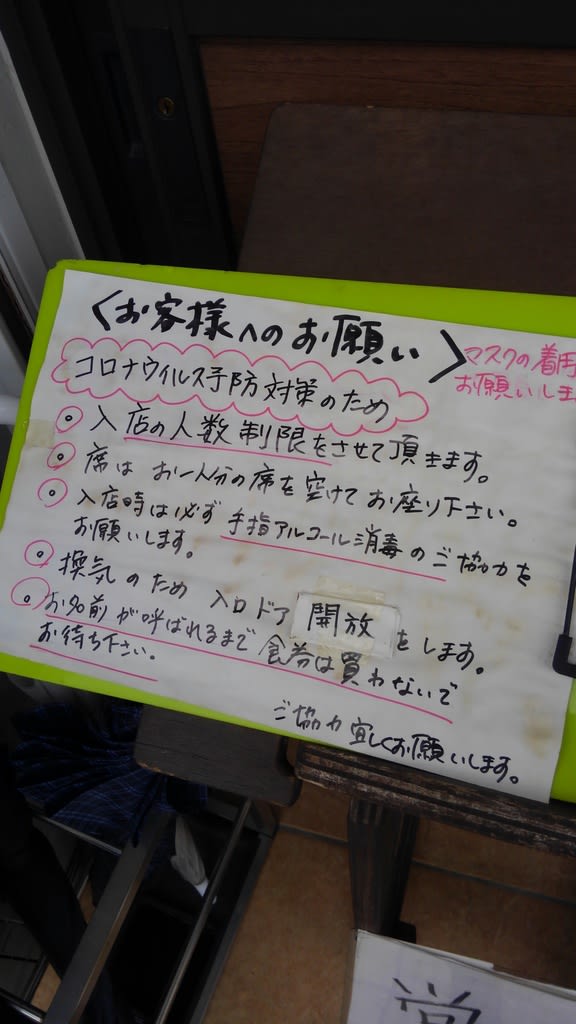 <お客様へのお願い>
マスクの着用
お願いしま
コロナウイルス予防対策のため
。入店の人数制限をさせて頂きます。
。席は お一人分の席を空けてお座り下さい。
。入店時は必ず 手指アルコール消毒のご協力を
お願いします。
。換気のため 入口ドア 開放 をします。
。お名前が呼ばれるまで食券は買わないで
お待ち下さい。
ご協力宜しくお願いします。